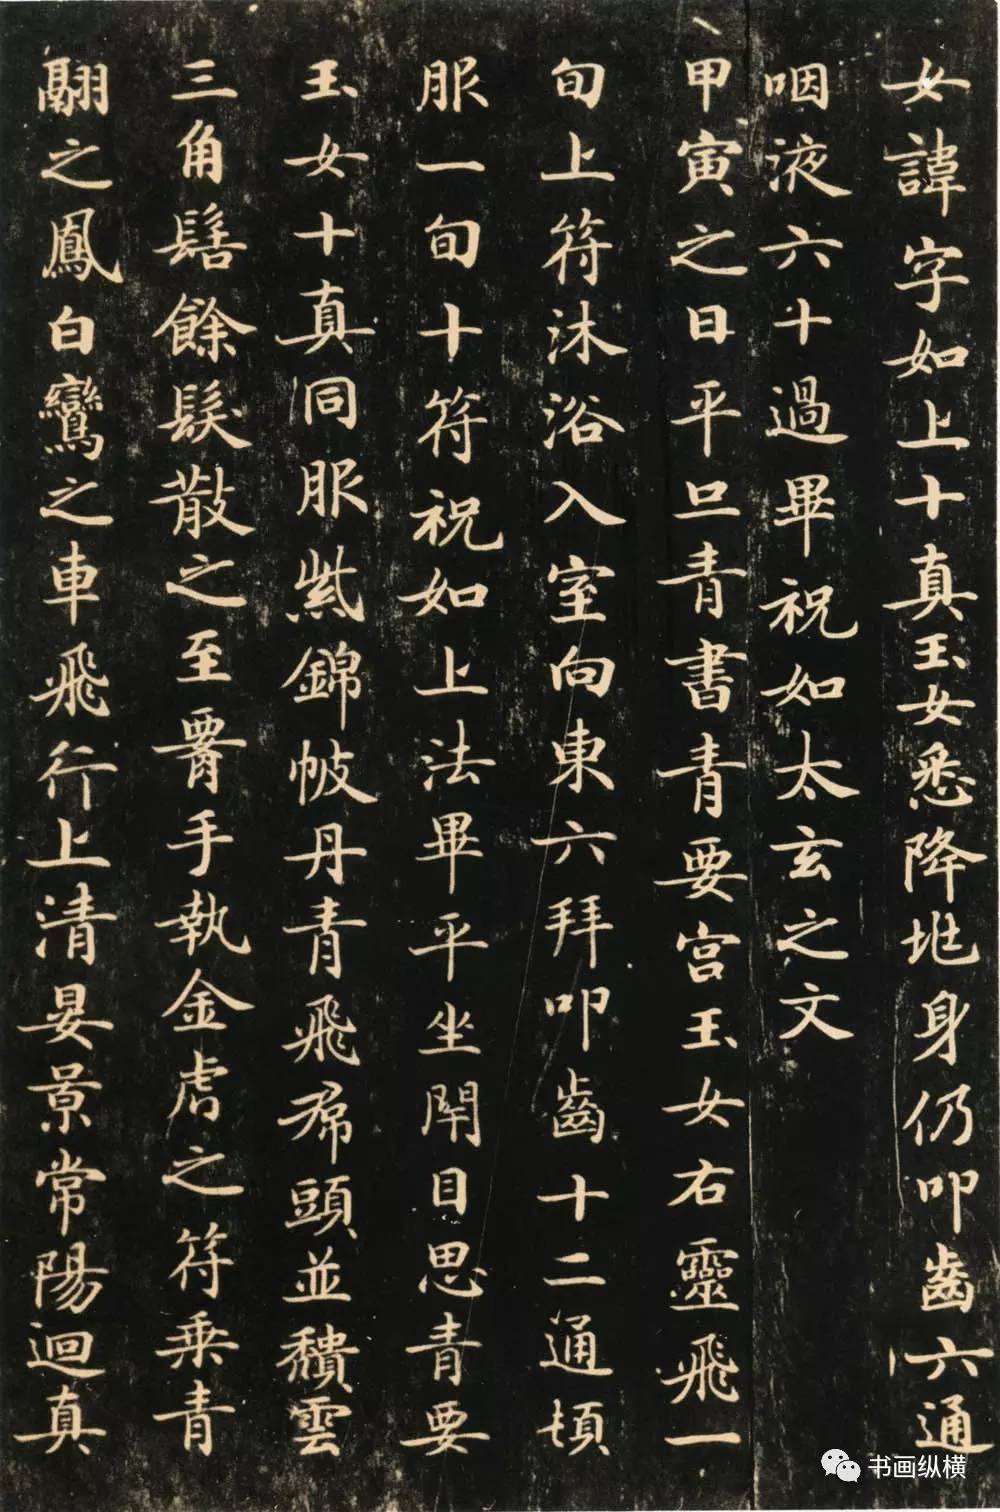 女諱字如上十真玉女悉降地身仍叩齒六通
咽液六十過畢祝如太玄之文
甲寅之日平旦青書青要宮玉女右靈飛一
旬上符沐浴入室向東六拜叩齒十二通頓
服一旬十符祝如上法畢平坐閉目思青要
玉女十真同服紫錦帔丹青飛帬頭並穨雲
三角髻餘髮散之至署手執金虎之符乗青
翮之鳳白鸞之車飛行上清晏景常陽迴真
书画纵横